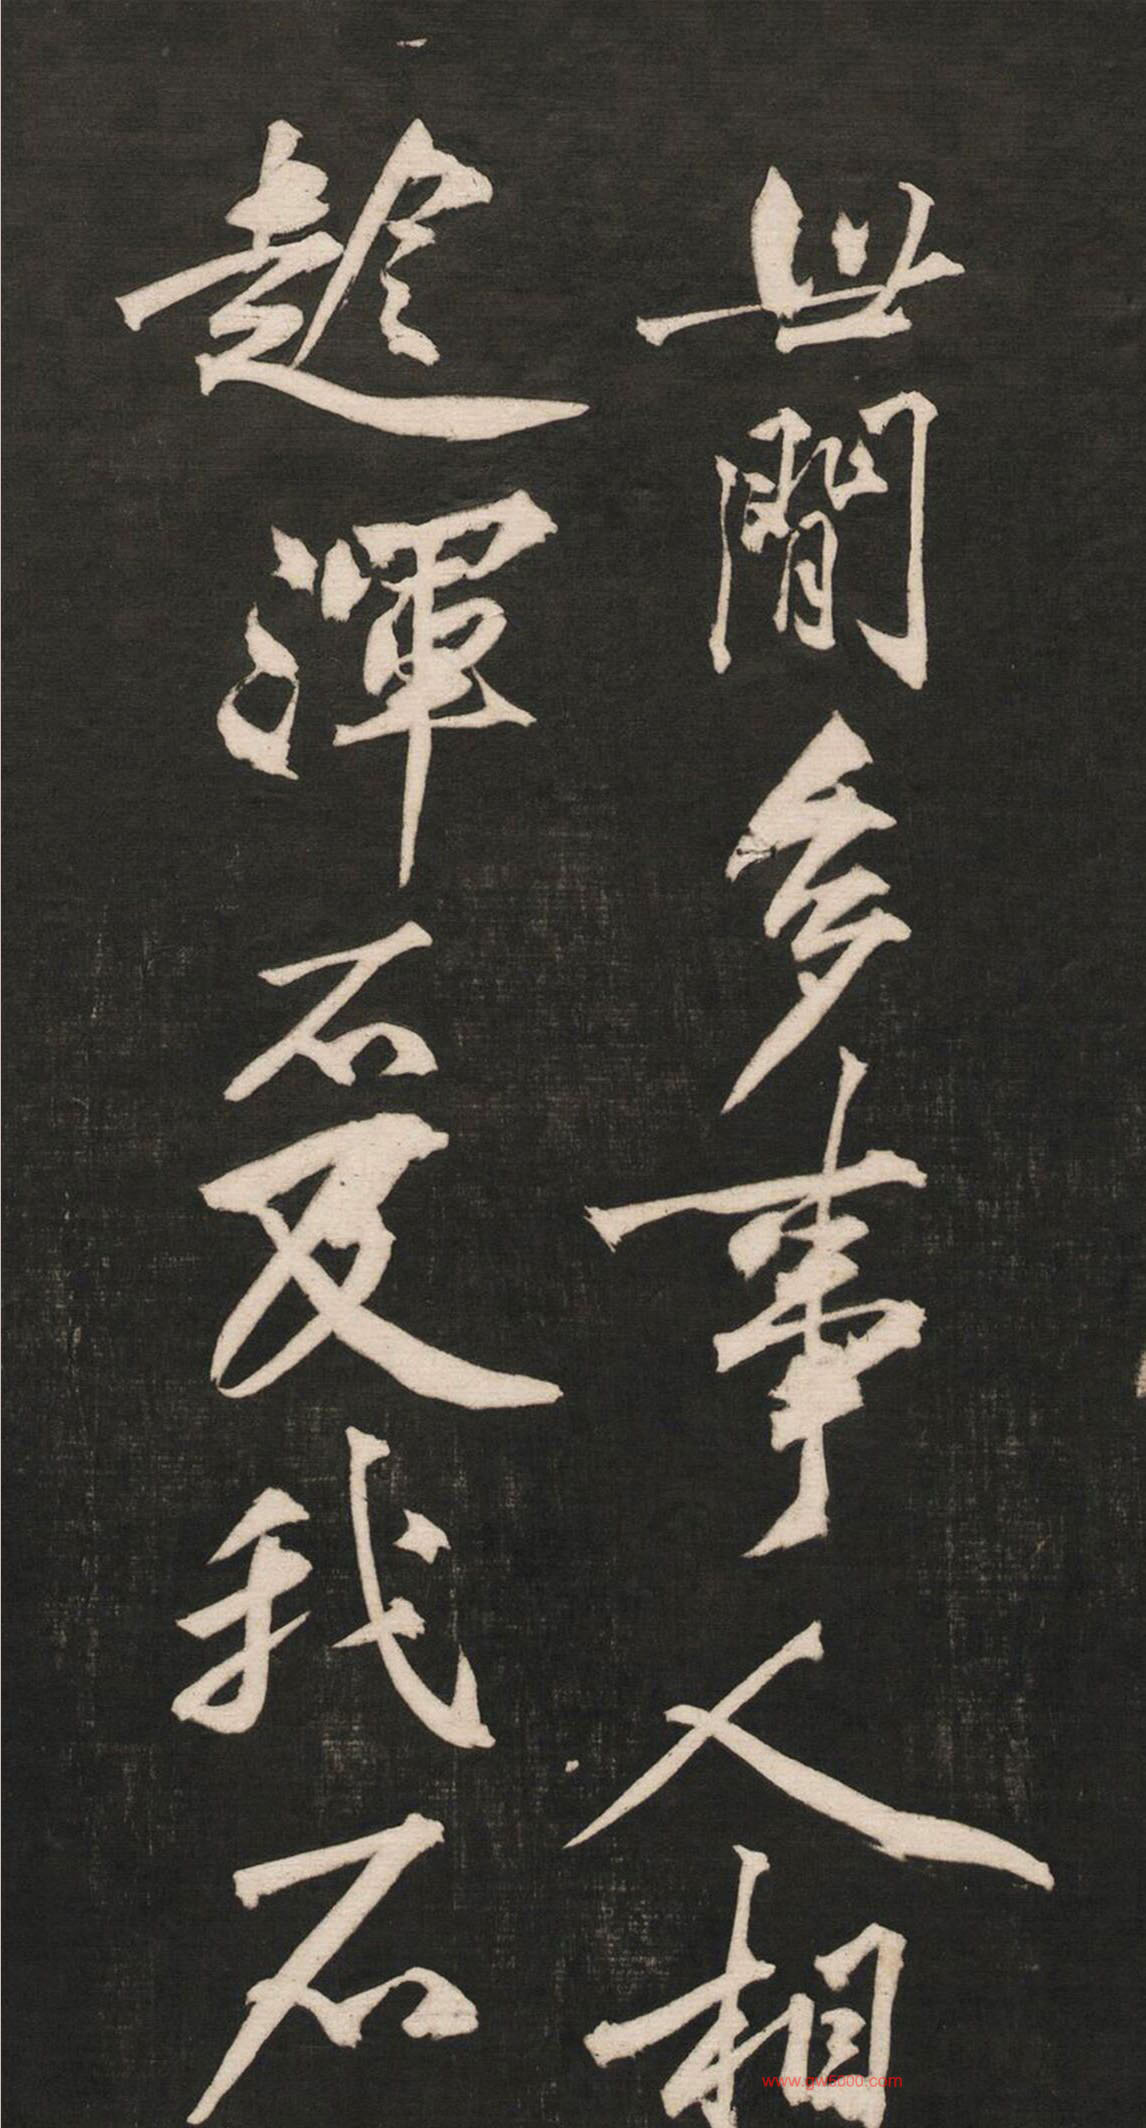 世閒多事人相
趁渾不及我不
www.gwl5000.com